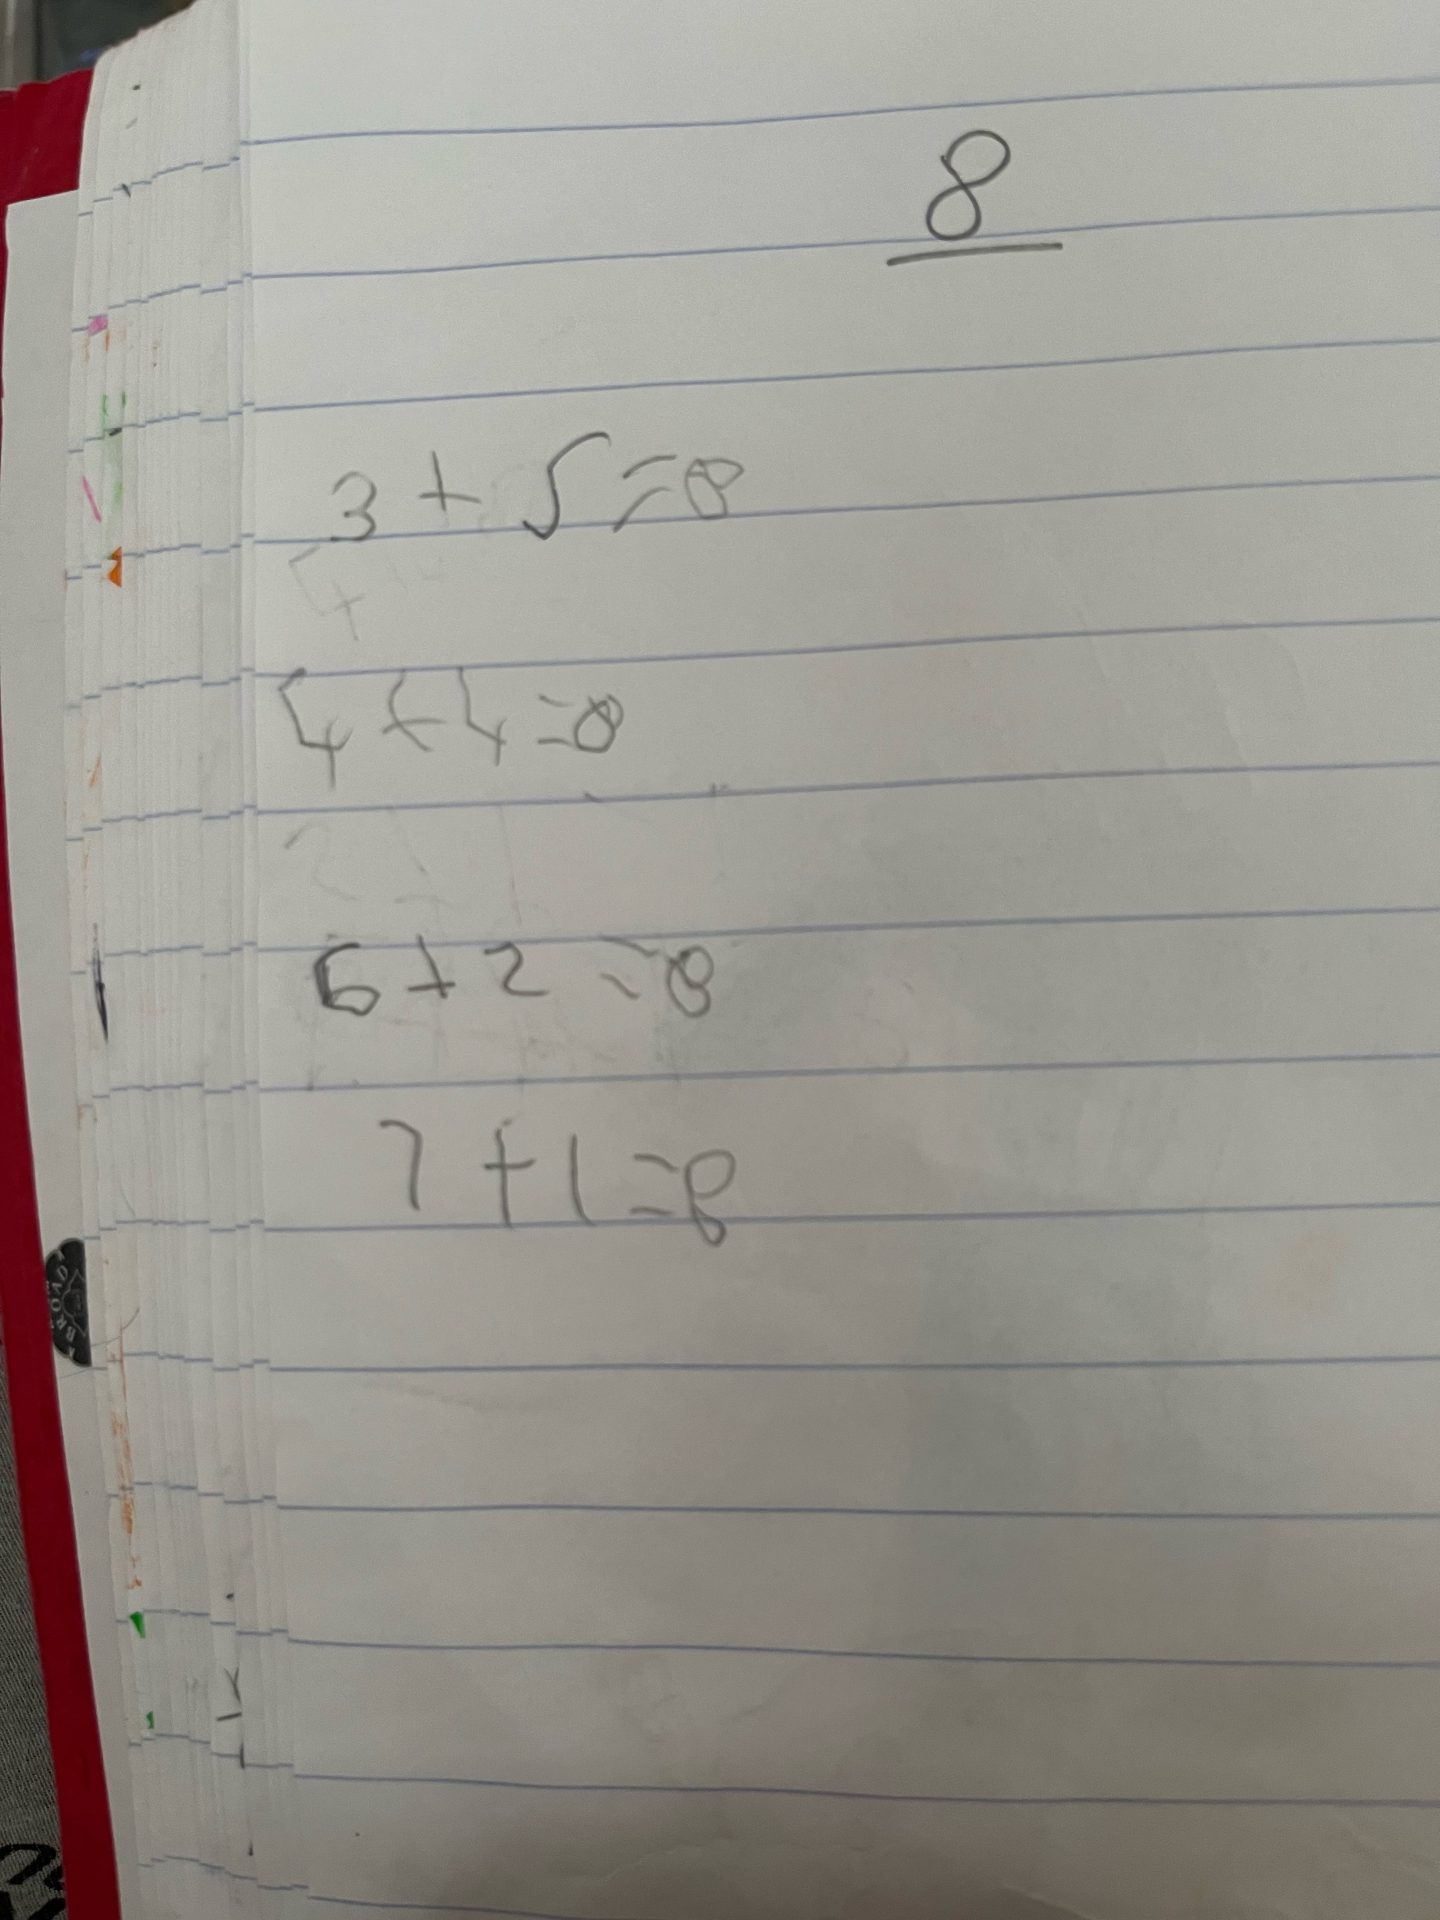 8
3 + 5 = 8
4 + 4 = 8
6 + 2 = 8
7 + 1 = 8